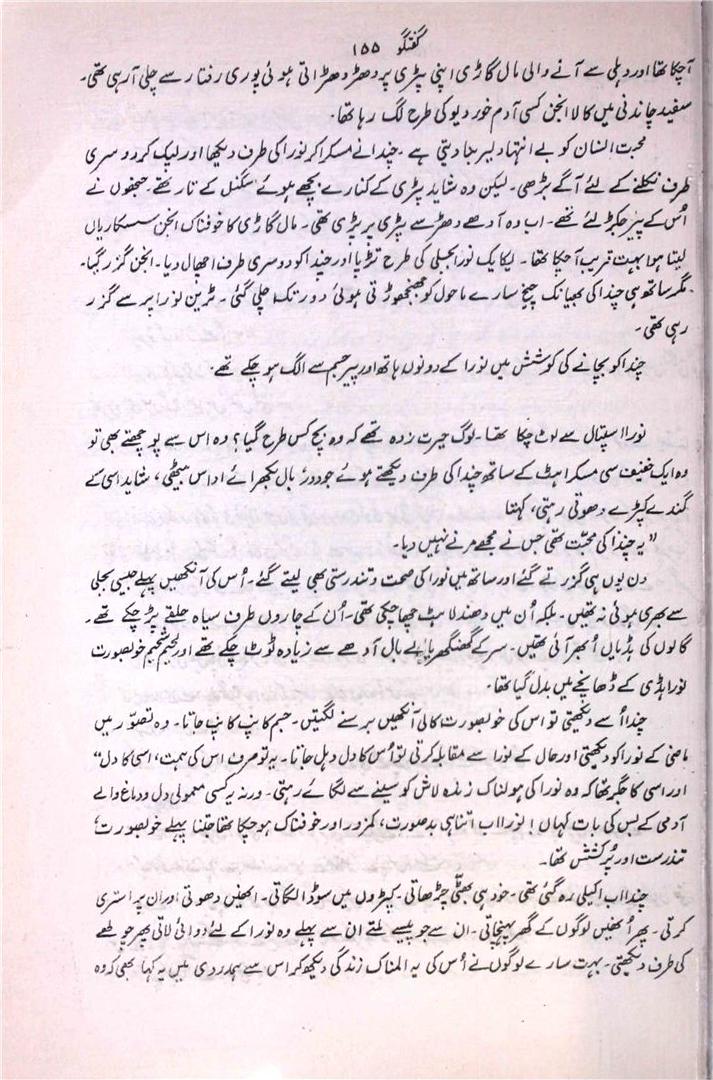 گفتگو ۱۵۵
آچکا تھا اور دہلی سے آنے والی مال گاڑی اپنی پٹری پر دھڑ دھڑاتی ہوئی پوری رفتار سے چلی آرہی تھی۔
سفید چاندنی میں کالا انجن کسی آدم خور دیو کی طرح لگ رہا تھا۔
محبت انسان کو بے انتہا دلیر بنا دیتی ہے۔ چندا نے مسکرا کر نورا کی طرف دیکھا اور لپک کر دوسری
طرف نکلنے کے لئے آگے بڑھی۔ لیکن وہ شاید پٹری کے کنارے بچھے ہوئے سگنل کے تار تھے۔ جنھوں نے
اُس کے پیر جکڑ لئے تھے۔ اب وہ آدھے دھڑ سے پٹری پر پڑی تھی۔ مال گاڑی کا خوفناک انجن سسکاریاں
لیتا ہوا بہت قریب آچکا تھا۔ یکایک نورا بجلی کی طرح تڑپا اور چندا کو دوسری طرف اچھال دیا۔ انجن گزر گیا۔
مگر ساتھ ہی چندا کی بھیانک چیخ سارے ماحول کو جھنجھوڑتی ہوئی دور تک چلی گئی۔ ٹرین نورا پر سے گزر
رہی تھی۔
چندا کو بچانے کی کوشش میں نورا کے دونوں ہاتھ اور پیر جسم سے الگ ہو چکے تھے۔
نورا اسپتال سے لوٹ چکا تھا۔ لوگ حیرت زدہ تھے کہ وہ بچ کس طرح گیا؟ وہ اس سے پوچھتے بھی تو
وہ ایک خفیف سی مسکراہٹ کے ساتھ چندا کی طرف دیکھتے ہوئے جو دور بال بکھرائے اداس بیٹھی، شاید اسی کے
گندے کپڑے دھوتی رہتی، کہتا
”یہ چندا کی محبت تھی جس نے مجھے مرنے نہیں دیا۔
دن یوں ہی گزرتے گئے اور ساتھ میں نورا کی صحت و تندرستی بھی لیتے گئے۔ اُس کی آنکھیں پہلے جیسی بجلی
سے بھری ہوئی نہ تھیں۔ بلکہ اُن میں دھندلاہٹ چھا چکی تھی۔ اُن کے چاروں طرف سیاہ حلقے پڑ چکے تھے۔
گالوں کی ہڈیاں اُبھر آئی تھیں۔ سر کے گھنگھریالے بال آدھے سے زیادہ ٹوٹ چکے تھے اور لحیم شحیم خوبصورت
نورا ہڈی کے ڈھانچے میں بدل گیا تھا۔
چندا اُسے دیکھتی تو اس کی خوبصورت کالی آنکھیں برسنے لگتیں۔ جسم کانپ کانپ جاتا۔ وہ تصور میں
ماضی کے نورا کو دیکھتی اور حال کے نورا سے مقابلہ کرتی تو اُس کا دل دہل جاتا۔ یہ تو صرف اس کی ہمت، اسی کا دل“
اور اسی کا جگر تھا کہ وہ نورا کی ہولناک زندہ لاش کو سینے سے لگائے رہتی۔ ورنہ یہ کسی معمولی دل و دماغ والے
آدمی کے بس کی بات کہاں! نورا اب اتنا ہی بدصورت، کمزور اور خوفناک ہو چکا تھا جتنا پہلے خوبصورت،
تندرست اور پُرکشش تھا۔
چندا اب اکیلی رہ گئی تھی۔ خود ہی بھٹی چڑھاتی۔ کپڑوں میں سوڈا لگاتی۔ انھیں دھوتی اور ان پر استری
کرتی۔ پھر اُنھیں لوگوں کے گھر پہنچاتی۔ ان سے جو پیسے ملتے ان سے پہلے وہ نورا کے لئے دوائی لاتی پھر چولھے
کی طرف دیکھتی۔ بہت سارے لوگوں نے اُس کی یہ المناک زندگی دیکھ کر اس سے ہمدردی میں یہ کہا بھی کہ وہ